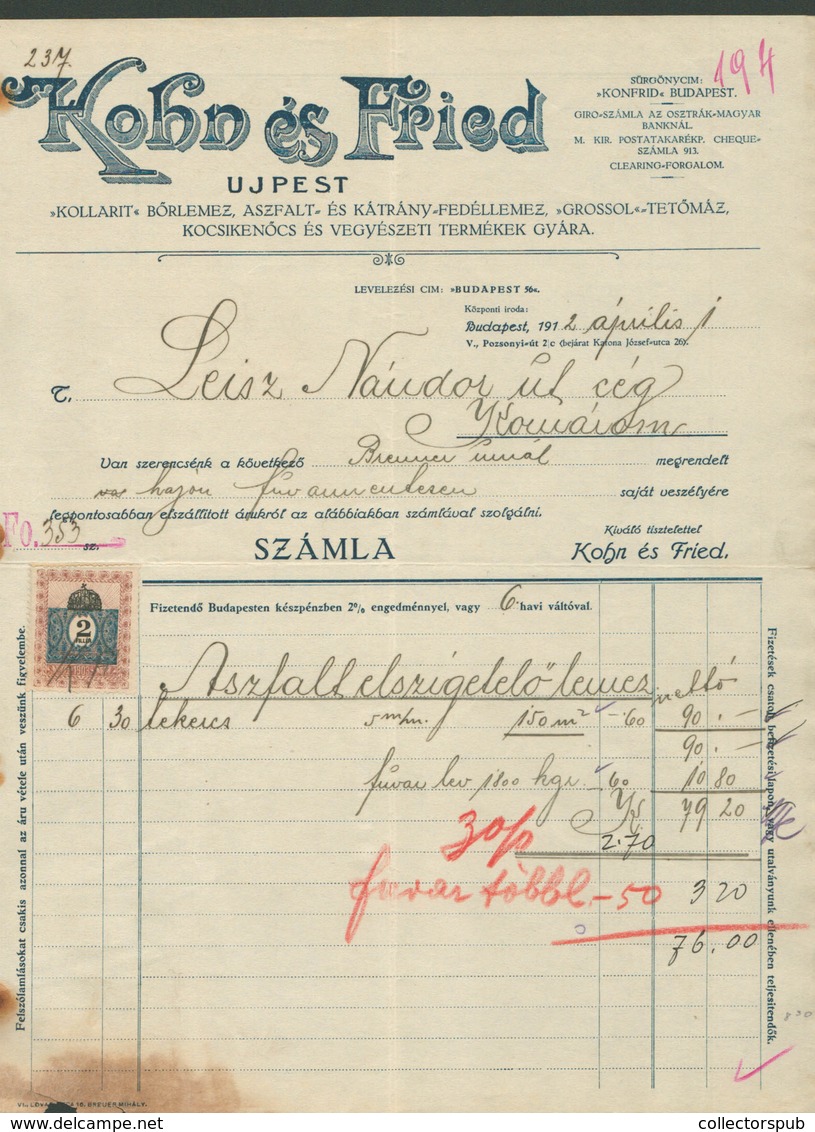 237.
194
Kohn és Fried
UJPEST
SÜRGÖNYCIM:
»KONFRID« BUDAPEST.
GIRO-SZÁMLA AZ OSZTRÁK-MAGYAR
BANKNÁL.
M. KIR. POSTATAKARÉKP. CHEQUE-
SZÁMLA 913.
CLEARING-FORGALOM.
»KOLLARIT« BŐRLEMEZ, ASZFALT- ÉS KÁTRÁNY-FEDÉLLEMEZ, »GROSSOL«-TETŐMÁZ,
KOCSIKENŐCS ÉS VEGYÉSZETI TERMÉKEK GYÁRA.
LEVELEZÉSI CIM: »BUDAPEST 56«.
Központi iroda:
Budapest, 1912 április 1
V., Pozsonyi-út 2/c (bejárat Katona József-utca 26).
T. Leisz Nándor út cég
Komárom
Van szerencsénk a következő Brenner úrnál megrendelt
hajón fuvarmentesen saját veszélyére
legpontosabban elszállitott árukról az alábbiakban számlával szolgálni.
Fo. 353 sz.
SZÁMLA
Kiváló tisztelettel
Kohn és Fried.
2
FILLÉR
Fizetendő Budapesten készpénzben 2% engedménnyel, vagy 6 havi váltóval.
Aszfalt elszigetelő lemez nettó
6 30 tekercs 5 m/m. 150 m² -.60 90.-
90.-
fuvar lev 1800 kgr -.60 10 80
K. 79 20
3% 2.70
fuvar többl -50 3 20
76.00
Felszólamlásokat csakis azonnal az áru vétele után veszünk figyelembe.
Fizetések csatolt befizetési lapon, vagy utalványunk ellenében teljesitendők.
BREUER MIHÁLY.
collectorspub